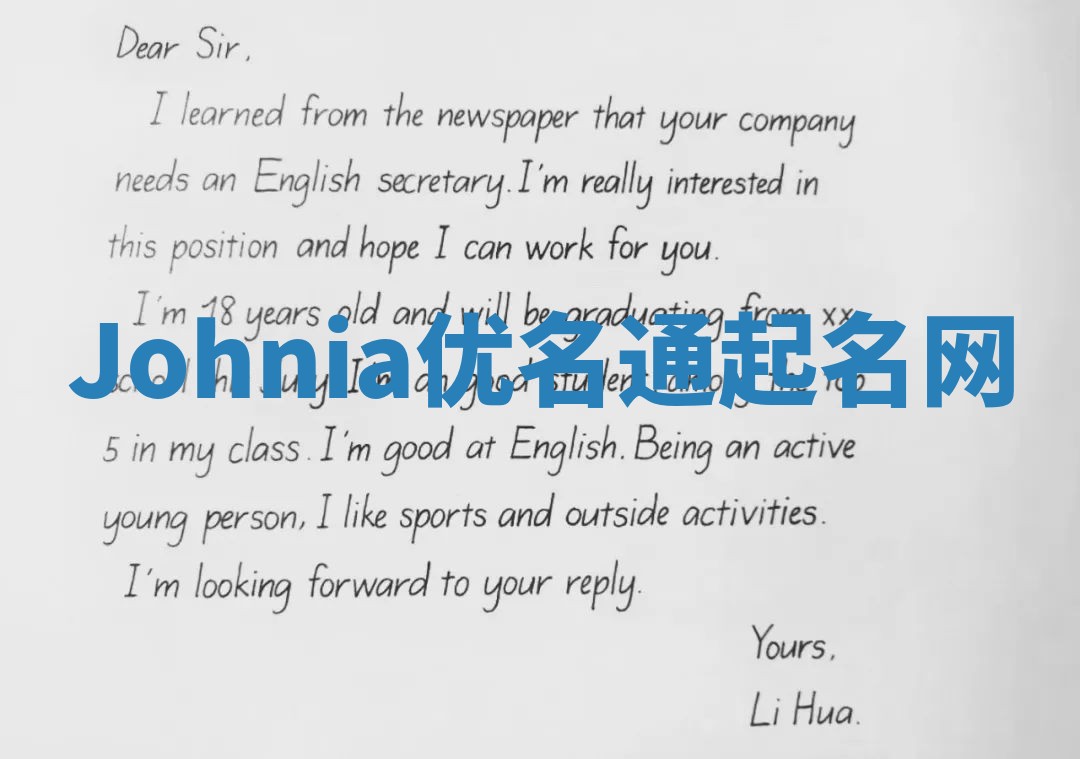 Dear Sir,
I learned from the newspaper that your company
needs an English secretary. I'm really interested in
this position and hope I can work for you.
I'm 18 years old and will be graduating from xx
Johnia优名通起名网
school this July. I'm an good student, among the top
5 in my class. I'm good at English. Being an active
young person, I like sports and outside activities.
I'm looking forward to your reply.
Yours,
Li Hua.